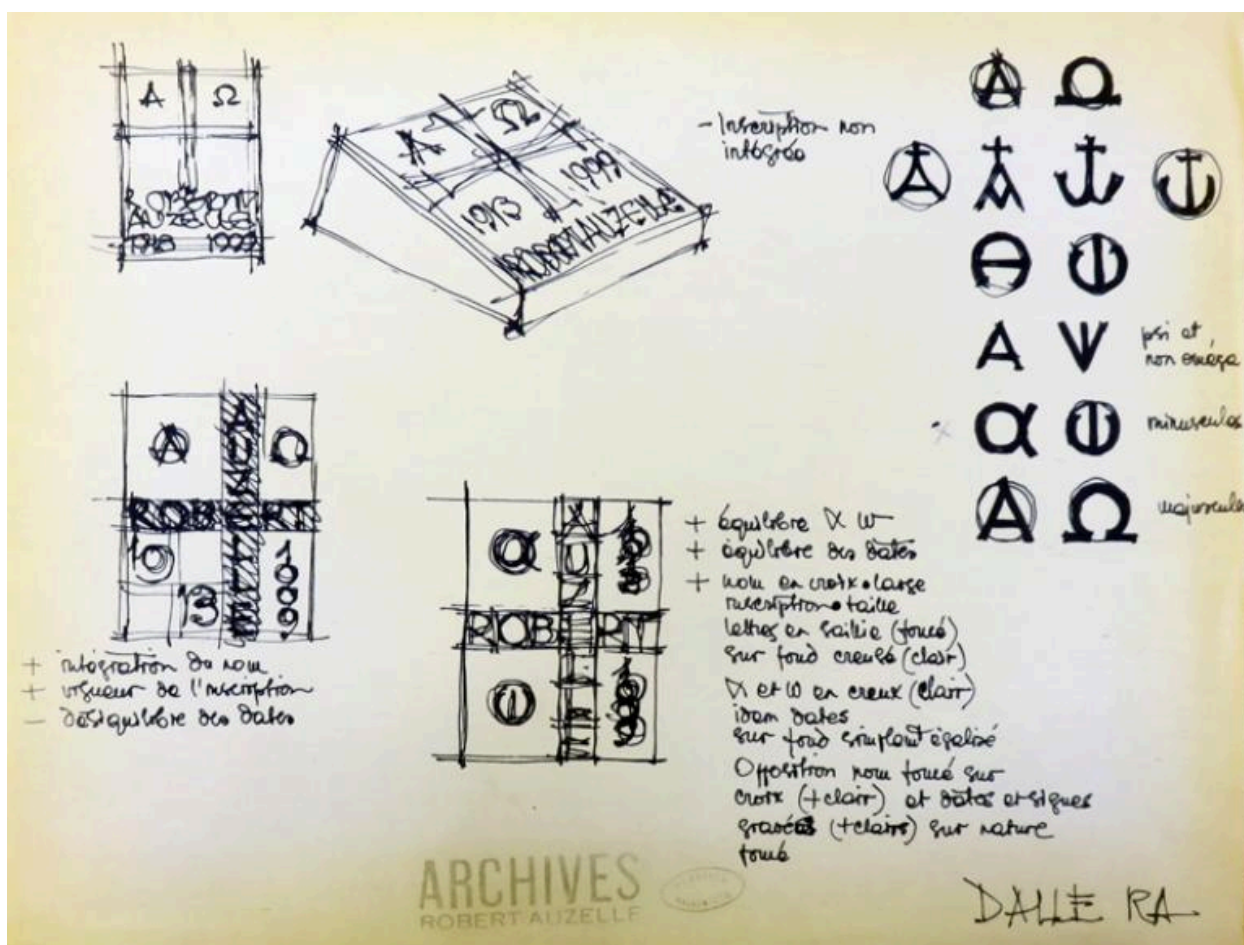 A Ω
ROBERT
AUZELLE
1913 1999
A Ω
1913 1999
ROBERT AUZELLE
- Inscription non
intégrée
A Ω
A Ω
psi et
non oméga
α
minuscules
A Ω
majuscules
A Ω
AUZELLE
ROBERT
19
13
1999
+ intégration du nom
+ vigueur de l'inscription
- déséquilibre des dates
α
AUZELLE
1913
ROBERT
1999
+ équilibre α ω
+ équilibre des dates
+ nom en croix + large
inscription + taille
lettres en saillie (foncé)
sur fond creusé (clair)
α et ω en creux (clair)
idem dates
sur fond simplent égalisé
Opposition nom foncé sur
croix (+ clair) et dates et signes
gravés (+ clairs) sur nature
foncé
ARCHIVES
ROBERT AUZELLE
DALLE RA